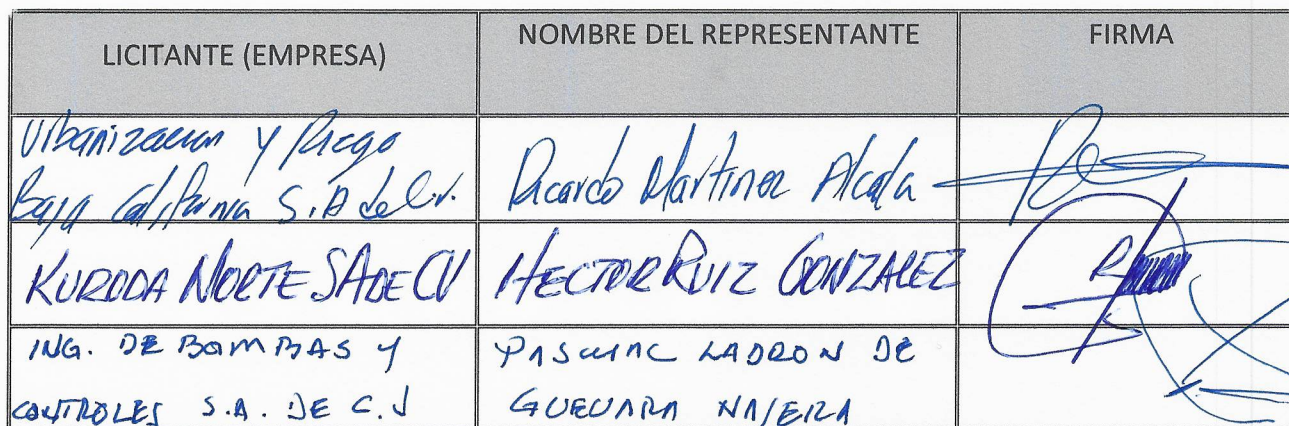 LICITANTE (EMPRESA) NOMBRE DEL REPRESENTANTE FIRMA
Urbanizacion y Riego
Baja California S.A de C.V. Ricardo Martinez Alcala
KURODA NORTE SA DE CV HECTOR RUIZ GONZALEZ
ING. DE BOMBAS Y PASCUAL LADRON DE
CONTROLES S.A. DE C.V GUEVARA NAJERA